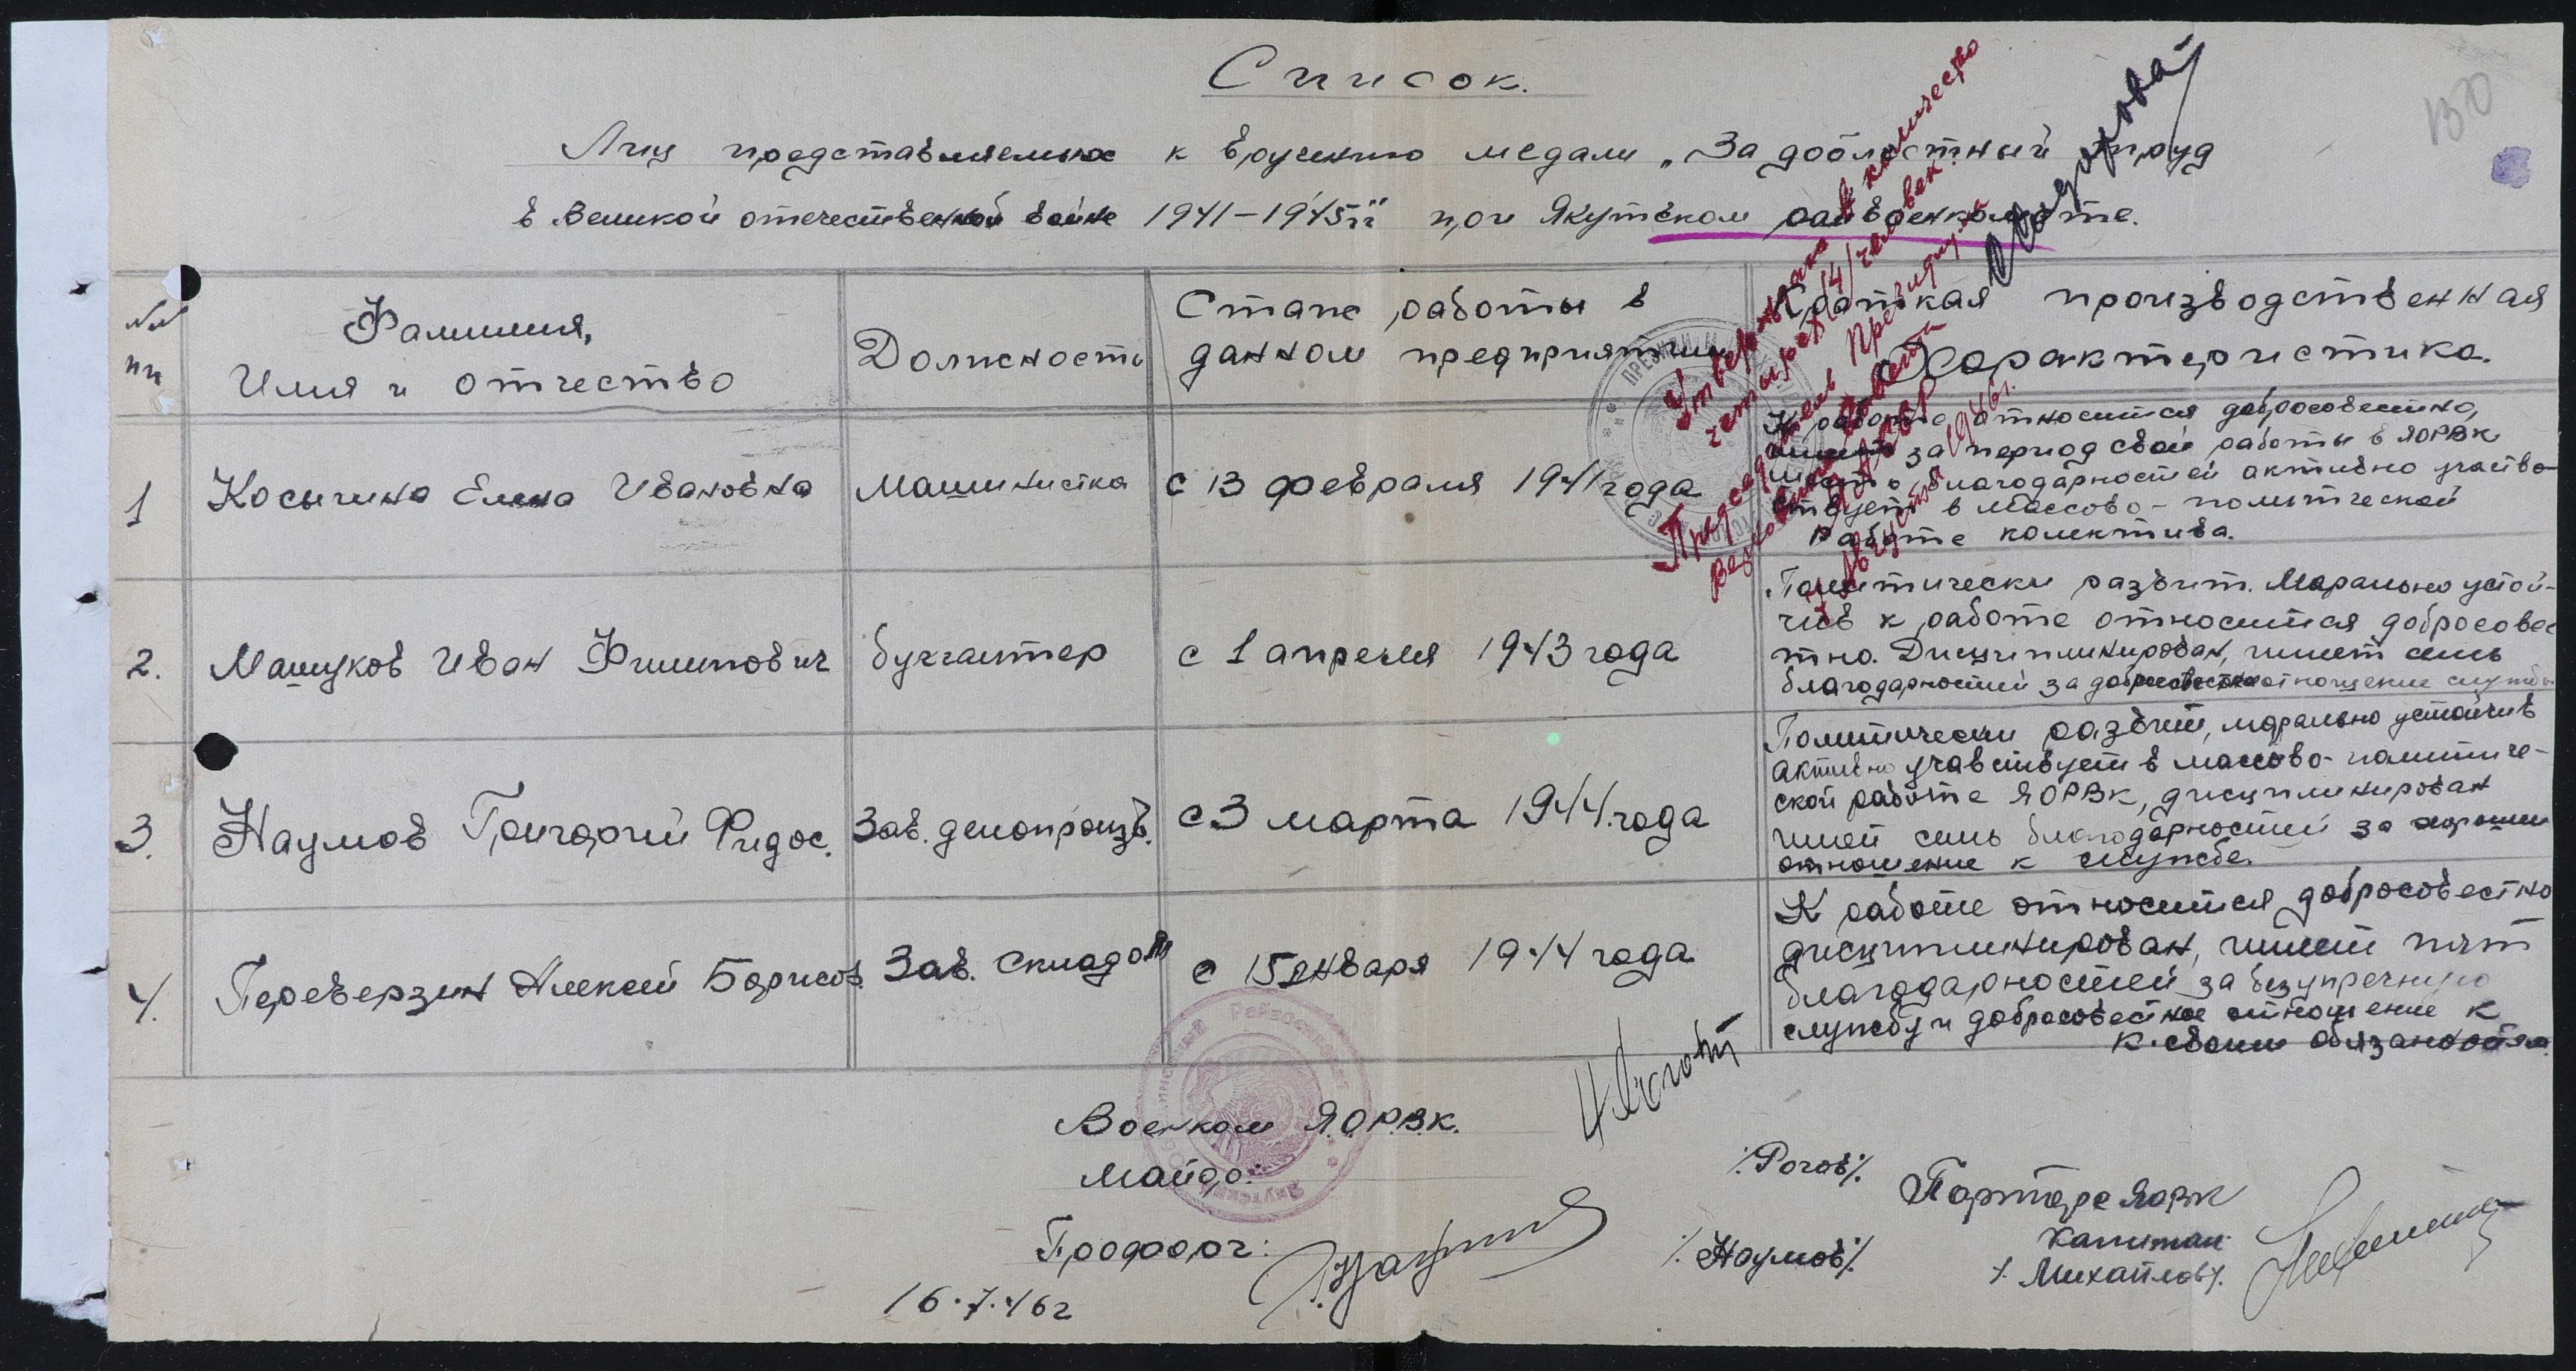 Список.
130
Лиц представляемых к вручению медали „За доблестный труд
в Великой отечественной войне 1941–1945гг" при Якутском райвоенкомате.
№№ пп
Фамилия,
Имя и отчество
Должность
Стаж работы в
данном предприятии
Краткая производственная
Характеристика.
Утверждаю в количестве
четырех /4/ человек.
Председатель Президиума
Верховного Совета
ЯАССР
августа 1946г.
1
Косыгина Елена Ивановна
Машинистка
с 13 февраля 1941 года
К работе относится добросовестно,
за период свой работы в ЯОРВК
благодарностей активно участво-
ствует в массово-политической
работе колектива.
2.
Машуков Иван Филипович
бухгалтер
с 1 апреля 1943 года
Политически развит. Марально устой-
чив к работе относится добросовес
тно. Дисциплинирован, имеет семь
благодарностей за добросовестное отношение службы
3.
Наумов Григорий Фидос.
Зав. делопроизв.
с 3 марта 1944 года
Политически развит, марально устойчив
активно учавствует в массово-политиче-
ской работе ЯОРВК, дисциплинирован
имеет семь благодарностей за хорошее
отношение к службе.
4.
Переверзин Алексей Борисов.
Зав. складом
с 15 января 1944 года
К работе относится добросовестно
дисциплинирован, имеет пят
благодарностей за безупречную
службу и добросовестное отношение к
к своим обязаностям
Военком Я.О.Р.В.К.
Майор:
/.Рогов/.
Парторг ЯОРВК
Капитан
/.Михайлов/.
Профорг:
/.Наумов/.
16.7.46г